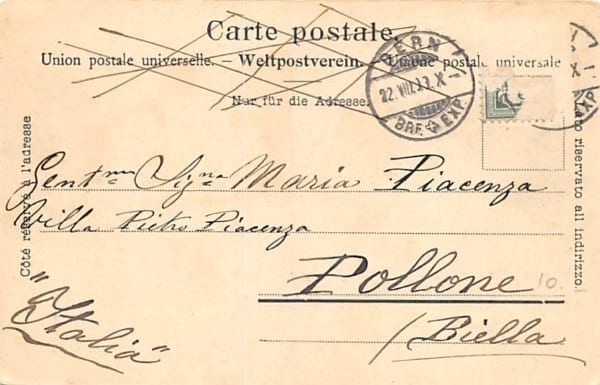 Carte postale.
Union postale universelle. — Weltpostverein. — Unione postale universale
Nur für die Adresse.
BERN
22.VIII.03.X-
BRF. EXP.
X
EXP.
Côté réservé à l'adresse
Lato riservato all indirizzo.
Gent.ma Sig.na Maria Piacenza
Villa Pietro Piacenza
Pollone
(Biella
"Italia"
10.